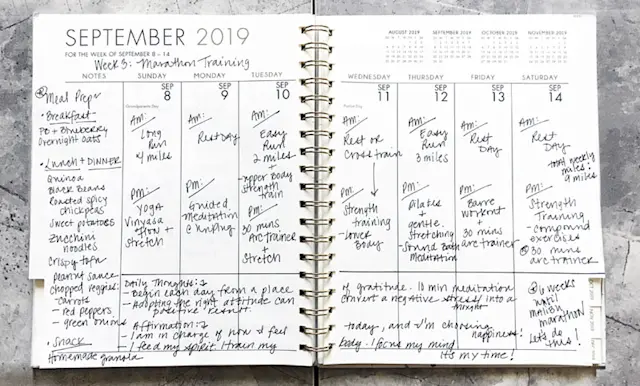 SEPTEMBER 2019
FOR THE WEEK OF SEPTEMBER 8 – 14
Week 3: Marathon Training
NOTES
Meal Prep:
• Breakfast:
PB + Blueberry
Overnight oats
• Lunch + DINNER
Quinoa
Black Beans
Roasted spicy
chickpeas
Sweet potatoes
Zucchini
noodles
Crispy tofu
Peanut sauce
chopped veggies:
- carrots
- red peppers
- green onions
• Snack
Homemade granola
SUNDAY
SEP
8
Grandparents Day
Am:
Long
Run
4 miles
Pm:
YOGA
Vinyasa
Flow +
Stretch
MONDAY
SEP
9
Am:
Rest DAY
Pm:
Guided
Meditation
@ Unplug
TUESDAY
SEP
10
Am:
Easy
Run
2 miles
+
upper Body
Strength
train
Pm:
30 mins
Arc Trainer
Stretch
Daily Thoughts:
- Begin each day from a place
- Adopting the right attitude can
positive result.
Affirmation:
- I am in charge of how I feel
- I feed my spirit. I train my
AUGUST 2019
SEPTEMBER 2019
OCTOBER 2019
NOVEMBER 2019
WEDNESDAY
SEP
11
Patriot Day
Am:
Rest or
Cross train
Pm:
Strength
training
- Lower
Body
THURSDAY
SEP
12
Am:
Easy
Run
3 miles
Pm:
Pilates
+
gentle
Stretching
- Sound Bath
Meditation
FRIDAY
SEP
13
Am:
Rest
DAY
Pm:
Barre
workout
+
30 mins
arc trainer
SATURDAY
SEP
14
Am:
Rest
DAY
total weekly
miles:
9 miles
Pm:
Strength
Training
- compound
exercises
30 mins
arc trainer
of gratitude. 10 min meditation
convert a negative stress into a
thought
today, and I'm choosing
happiness!
body. I focus my mind
It's my time!
6 weeks
until
malibu
marathon
Let's do
this!